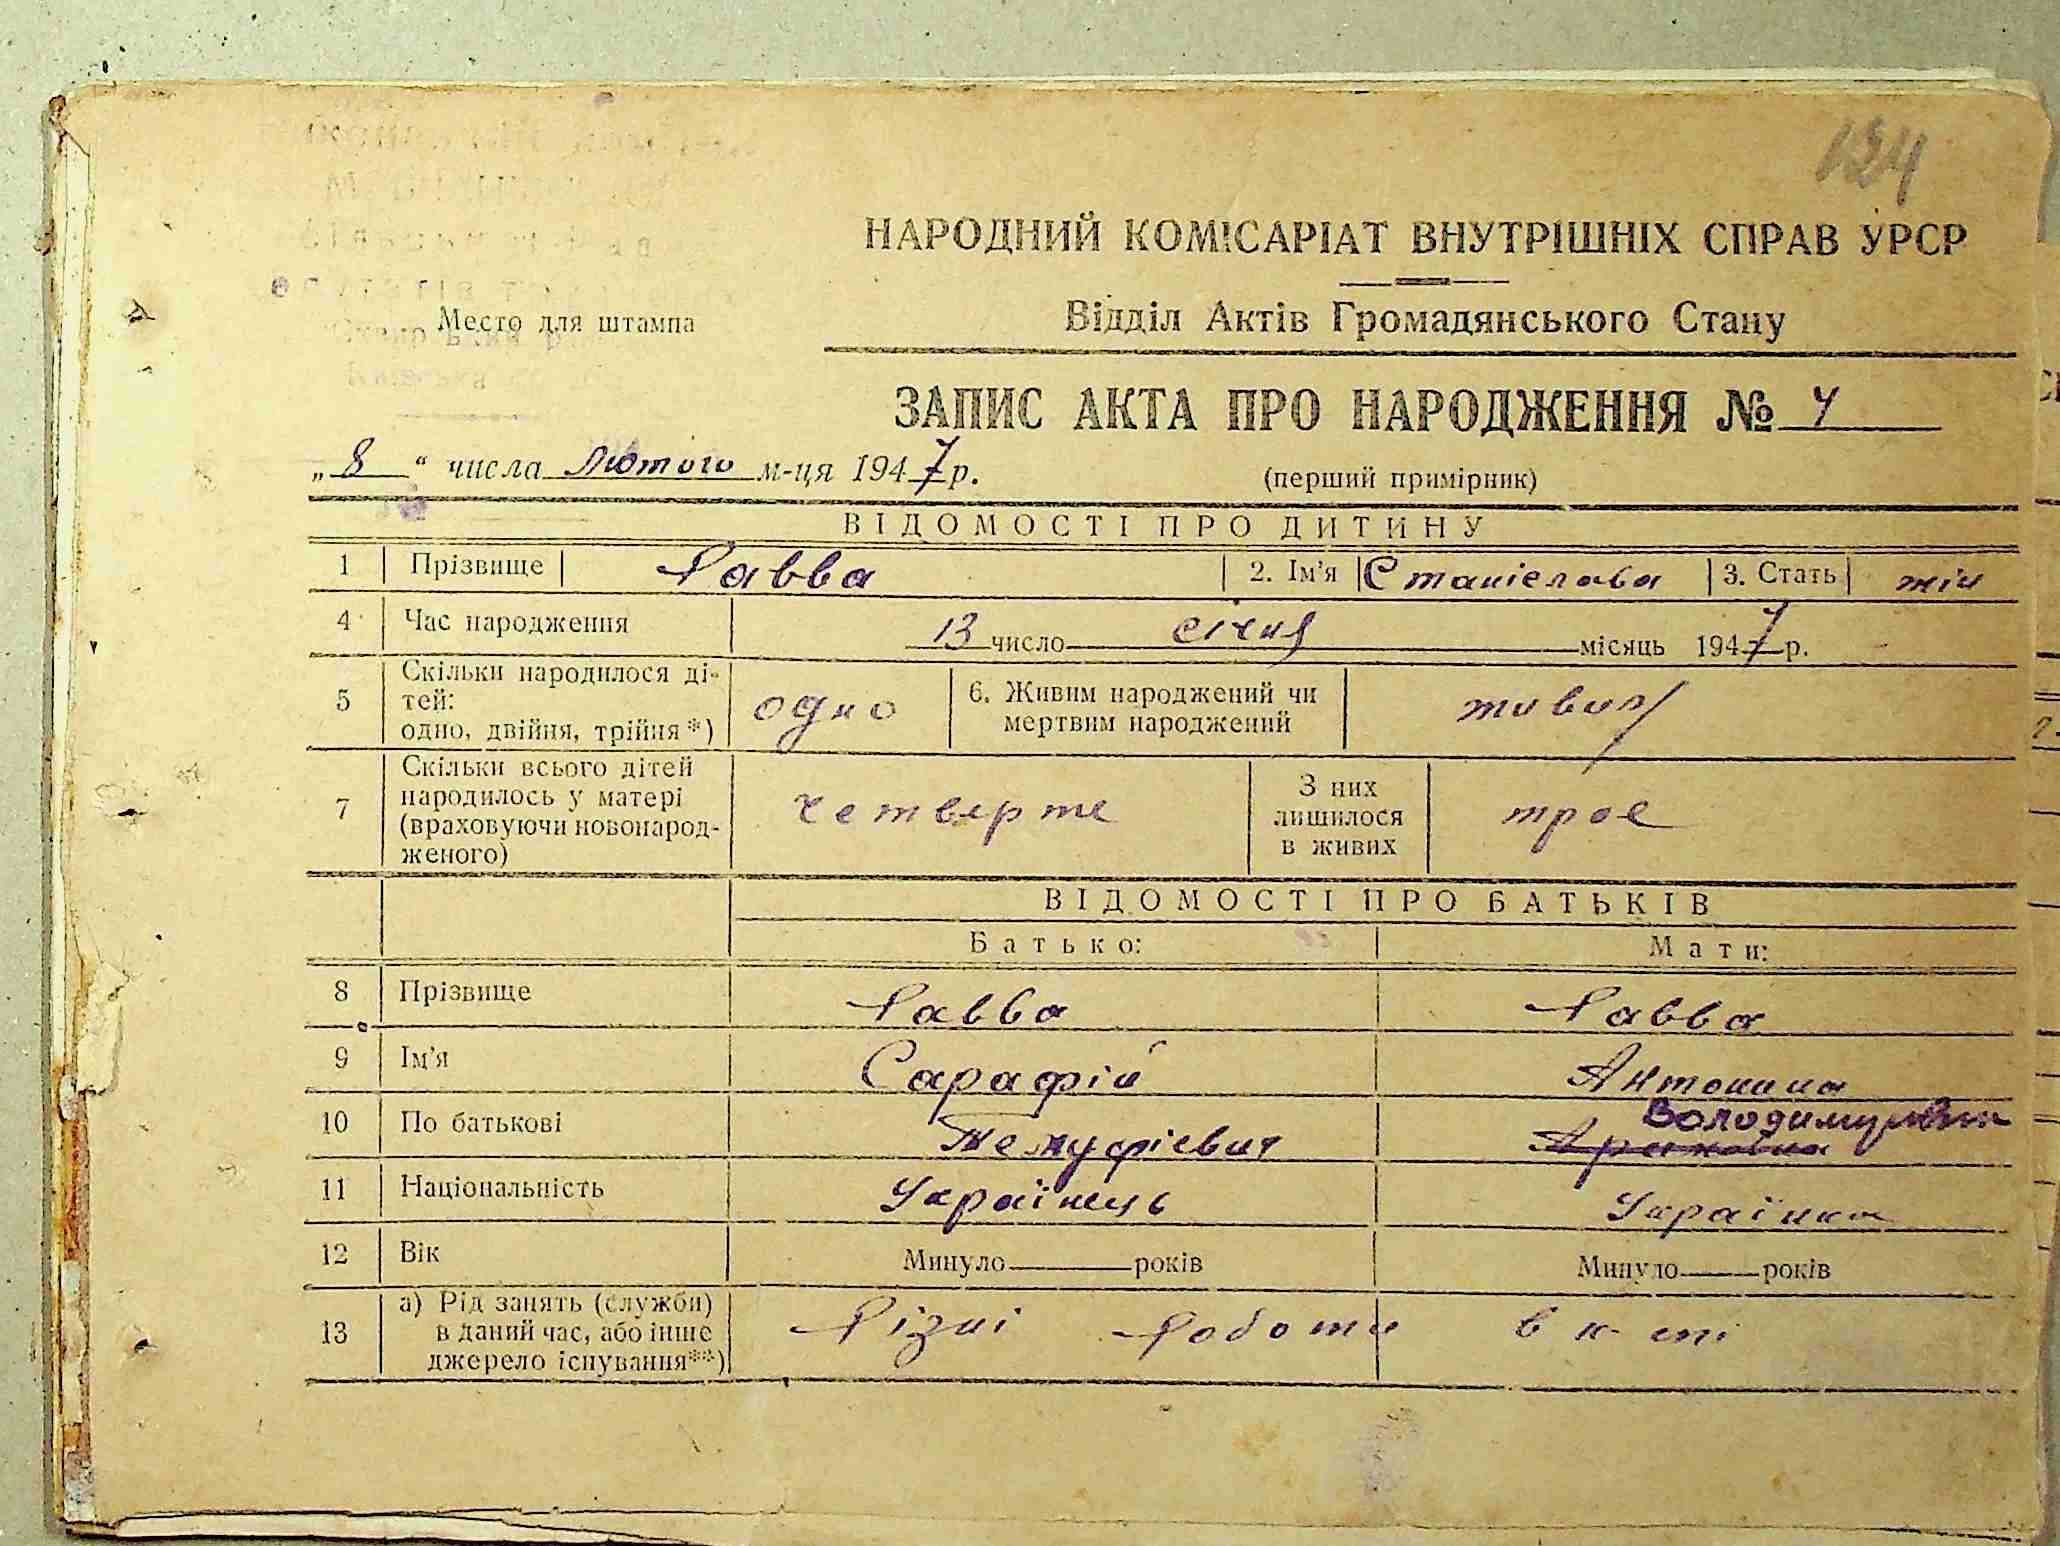 124
НАРОДНИЙ КОМІСАРІАТ ВНУТРІШНІХ СПРАВ УРСР
Место для штампа
Відділ Актів Громадянського Стану
ЗАПИС АКТА ПРО НАРОДЖЕННЯ № 4
„8“ числа лютого м-ця 1947 р.
(перший примірник)
ВІДОМОСТІ ПРО ДИТИНУ
1 Прізвище Равва 2. Ім'я Станіслава 3. Стать жін
4 Час народження 13 число січня місяць 1947 р.
5 Скільки народилося ді-
тей:
одно, двійня, трійня *) одно 6. Живим народжений чи
мертвим народжений живим
7 Скільки всього дітей
народилось у матері
(враховуючи новонарод-
женого) четверте З них
лишилося
в живих троє
ВІДОМОСТІ ПРО БАТЬКІВ
Батько: Мати:
8 Прізвище Равва Равва
9 Ім'я Сарафій Антонина
10 По батькові Володимирівна
11 Національність Українець Українка
12 Вік Минуло років Минуло років
13 а) Рід занять (служби)
в даний час, або інше
джерело існування**) Різні роботи в к-спі